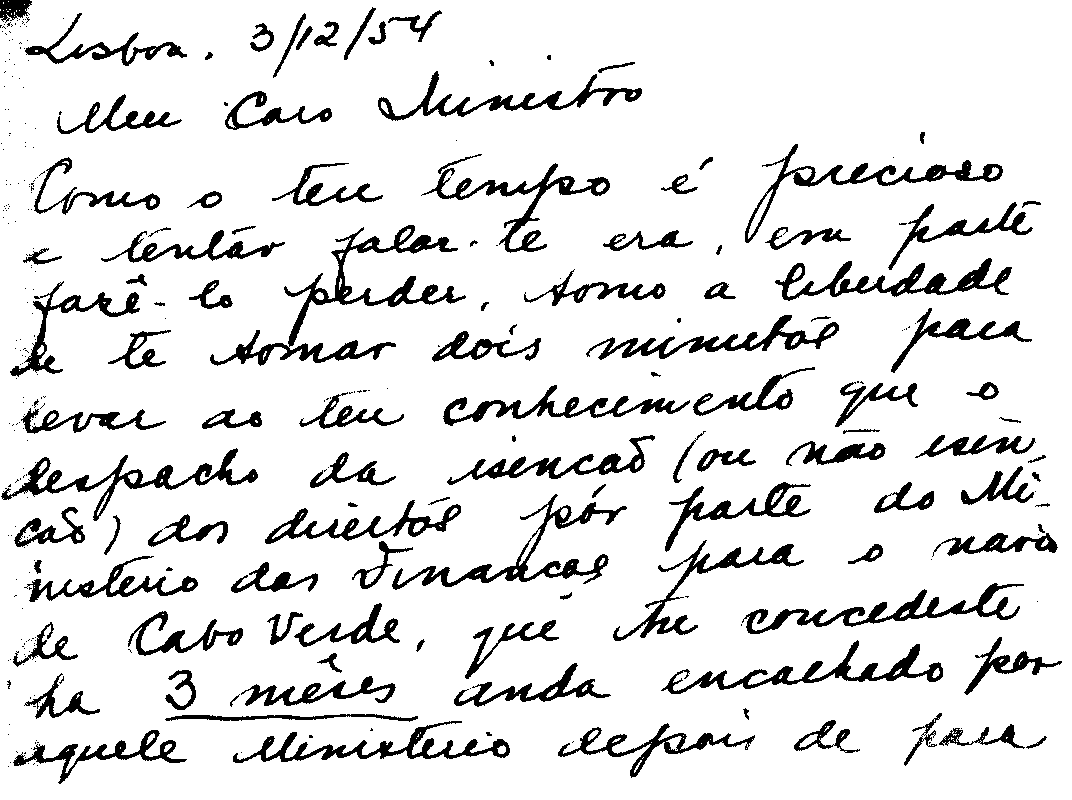 Lisboa. 3/12/54
Meu Caro Ministro
Como o teu tempo é precioso
e tentar falar-te era, em parte
fazê-lo perder, tomo a liberdade
de te tomar dois minutos para
levar ao teu conhecimento que o
despacho da isencaõ (ou não isen-
caõ) dos direitos pór parte do Mi-
nisterio das Finanças para o navio
de Cabo Verde, que tu concedeste
ha 3 mêses anda encalhado por
aquele Ministerio depois de para